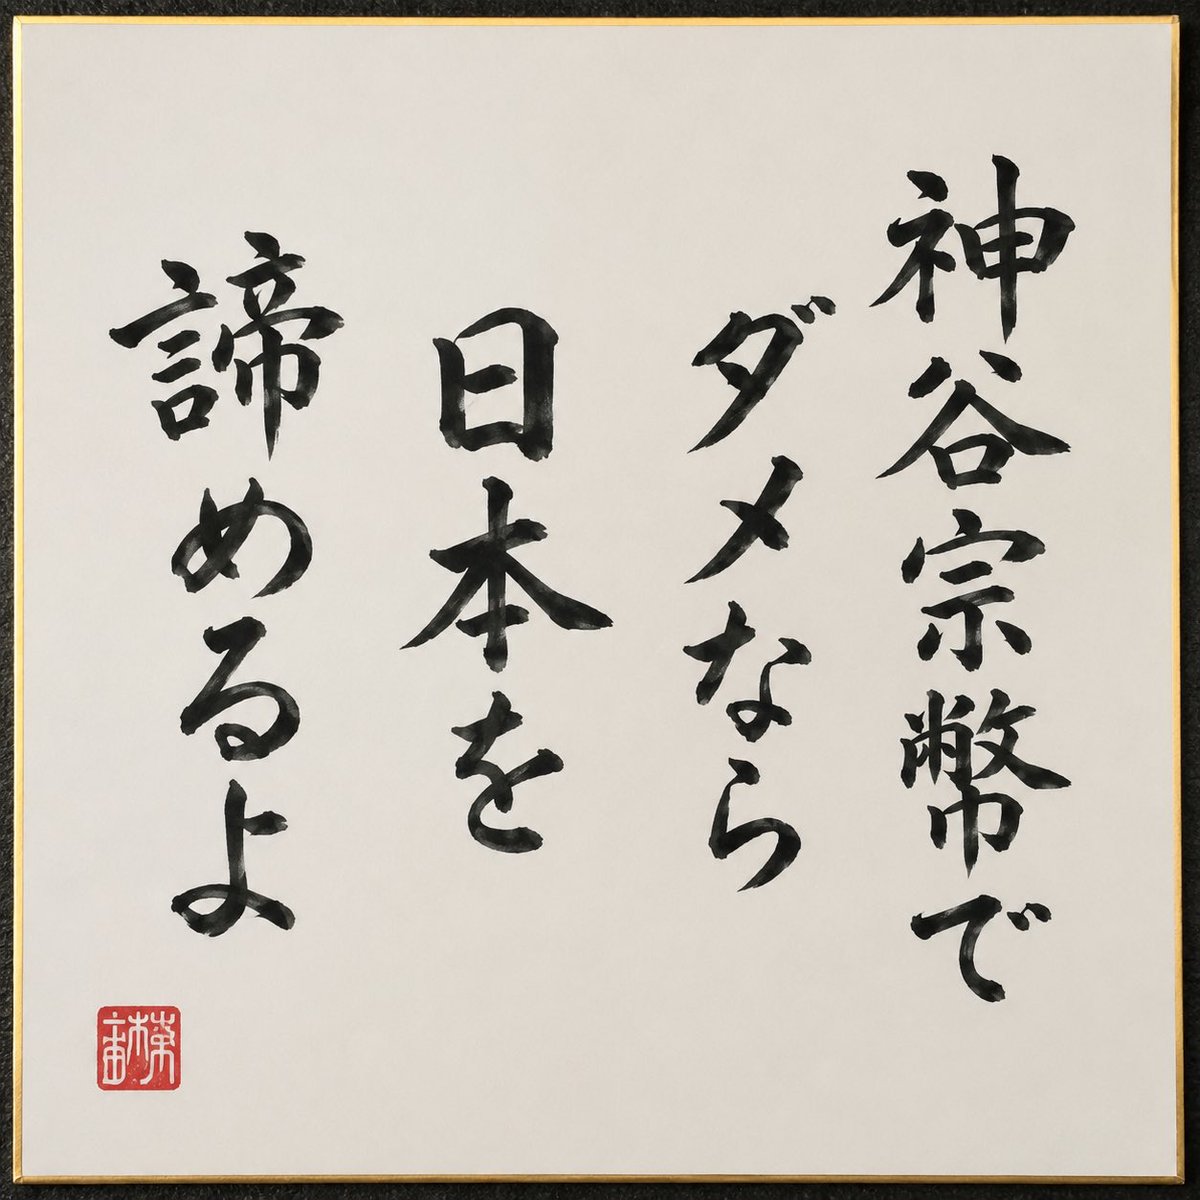 神谷宗幣で
ダメなら
日本を
諦めるよ